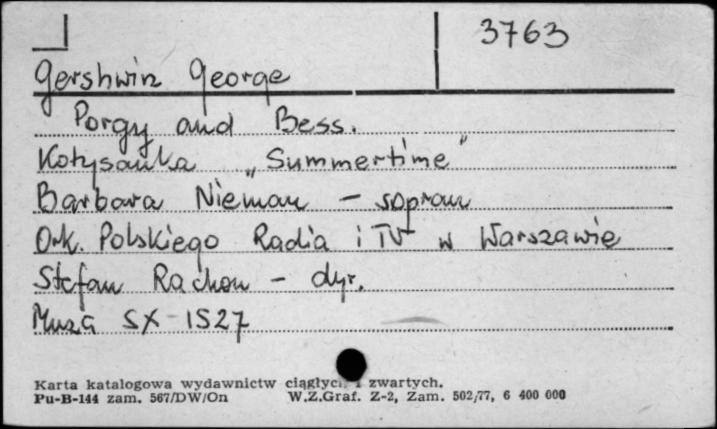 3763
Gershwin George
Porgy and Bess.
Kołysanka "Summertime"
Barbara Nieman - sopran
Ork. Polskiego Radia i TV w Warszawie
Stefan Rachoń - dyr.
Muza SX 1527
Karta katalogowa wydawnictw ciągłych i zwartych.
Pu-B-144 zam. 567/DW/On W.Z.Graf. Z-2, Zam. 502/77, 6 400 000